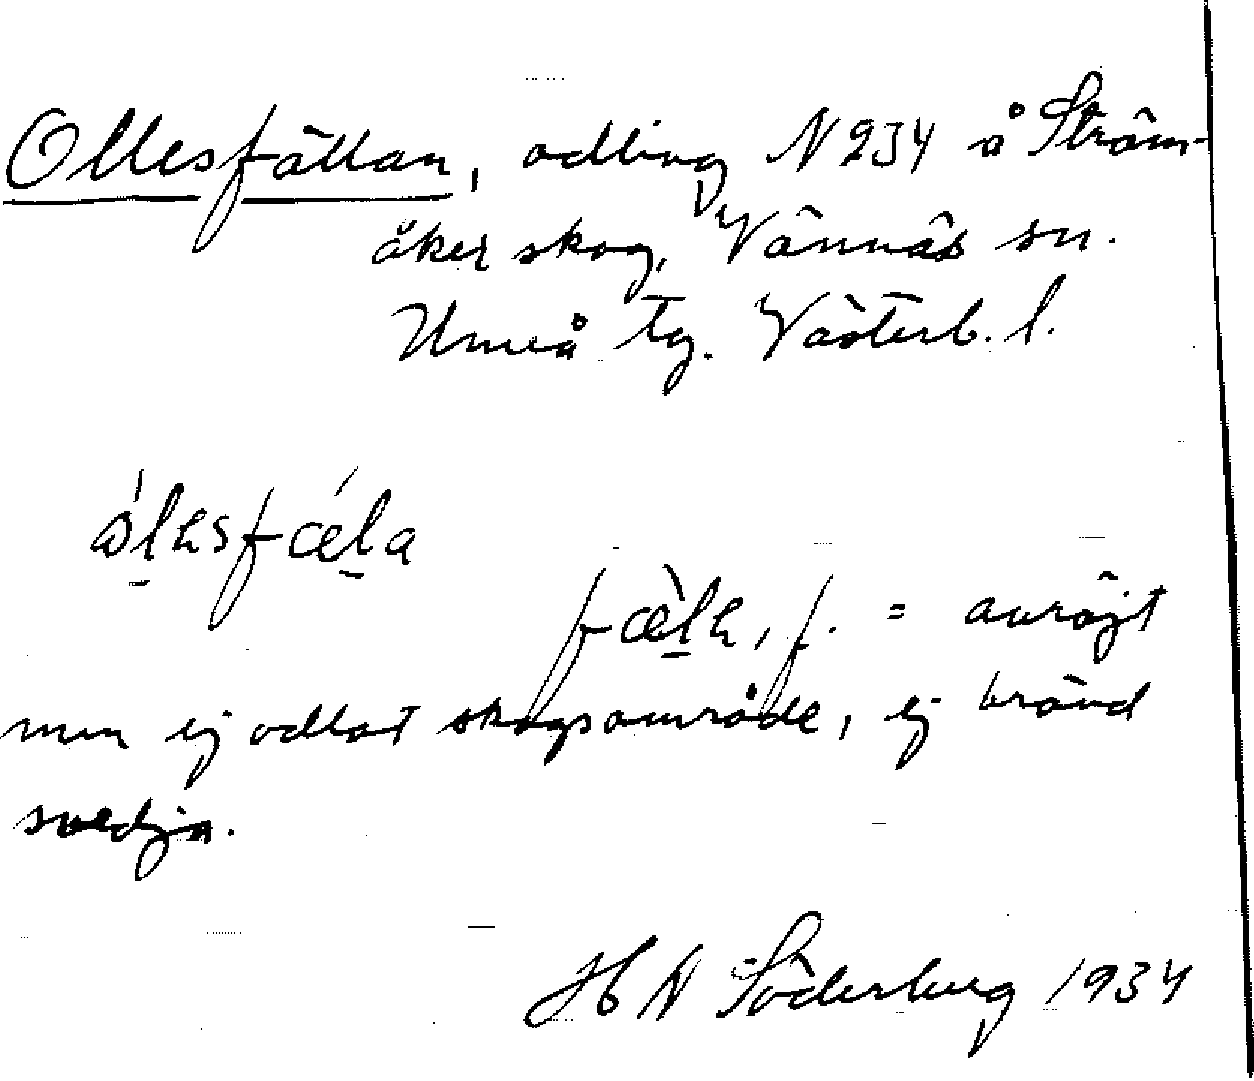 Ollesfällan, odling N 234 å Ström-
åker skog, Vännäs sn.
Umeå tg. Västerb. l.
fæ̀lh, f. = avröjt
men ej odlat skogsområde, ej bränd
svedja.
H N Söderberg 1934